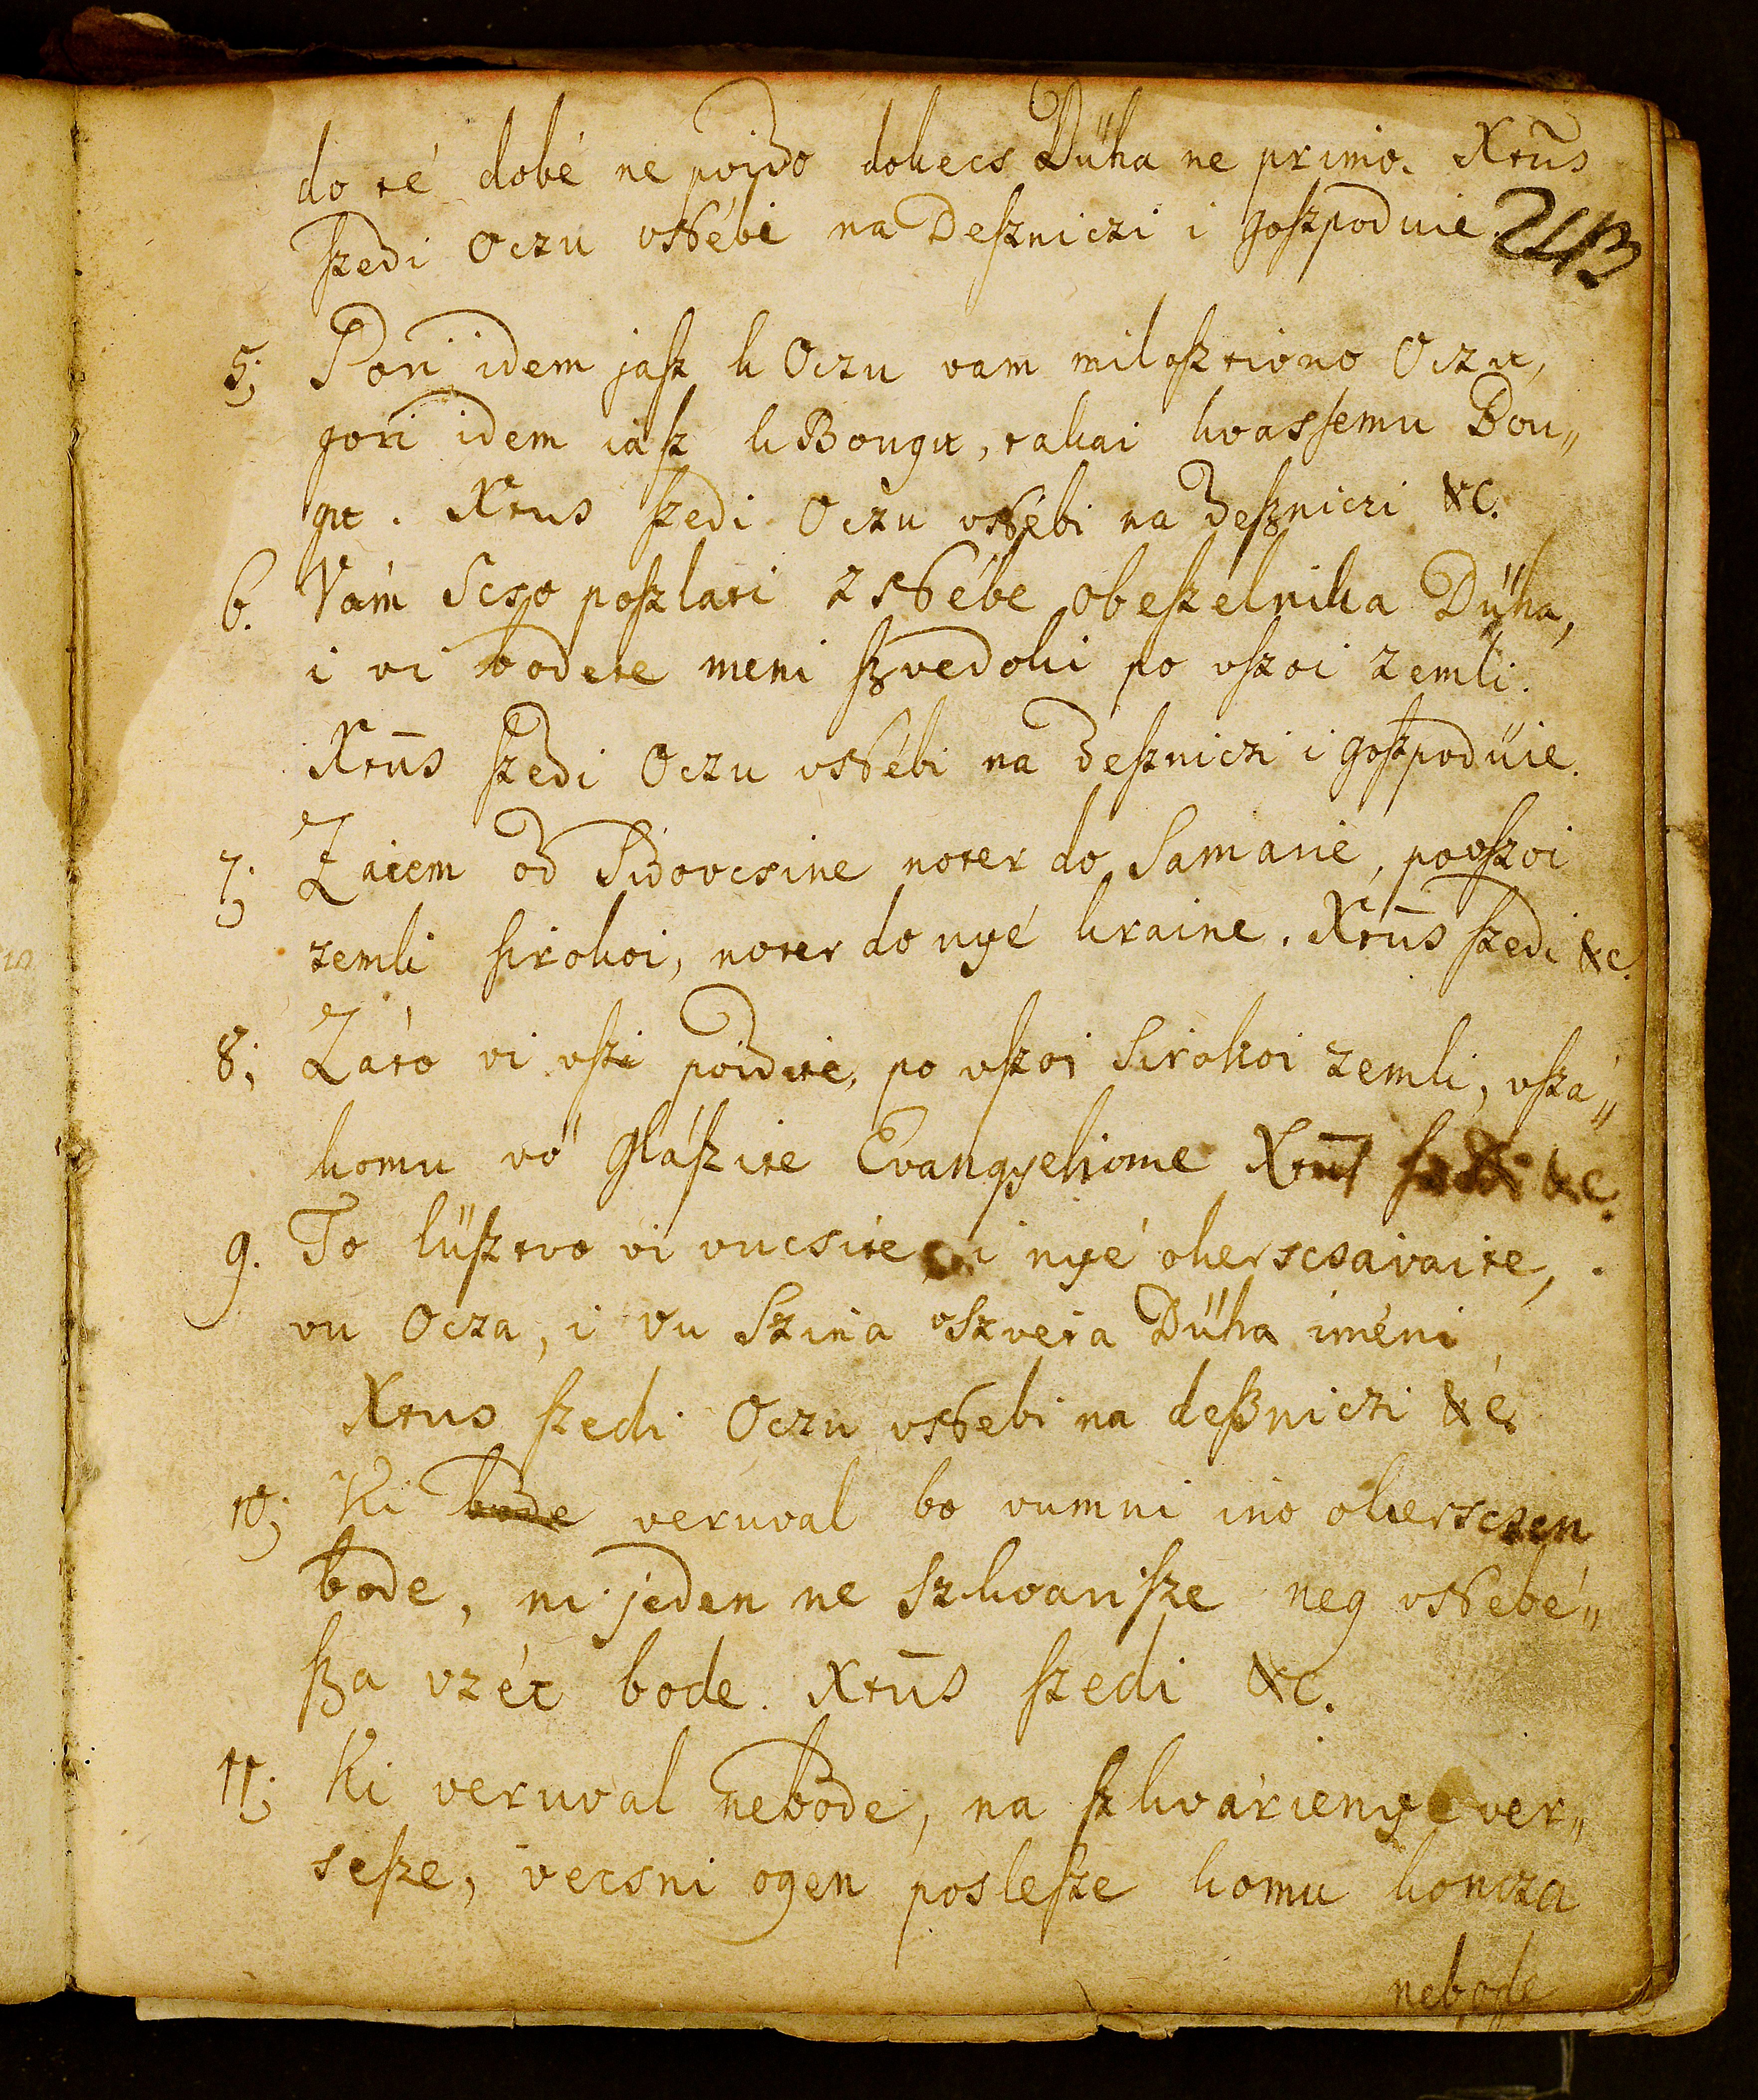 do té dobé ne poido dokecs Dühа ne primo. Xtūs
ſzedi Oczu vNébi na Deſzniczi i goſzpoduie
243
5; Gori idem jaſz k Oczu vam miloſztivno Oczu,
gori idem iaſz k Bougu, takai kvasſemu Bou„
gu. Xtus ſzedi Oczu vNébi na Deſzniczi &c.
6. Vám Scso poſzlati z Nébe obeſzelnika Dÿha,
i vi bodete meni ſzvedoki po vſzoi zemli.
Xtūs ſzedi Oczu vNébi na Deſzniczi i goſzpodüie.
7; Zatem od Sidovcsine noter do Samarie, povſzoi
zemli sirokoi, noter do nyé kraine. Xtūs ſzedi &c.
8; Záto vi vſzi poidite, po vſzoi Sirokoi zemli, vſzá„
komu vö gláſzite Evangyeliome Xtūs &c.
9. To lüſztvo vi vucsite, i nyé okerscsávaite,
vu Ocza, i vu Szina vSzveta Dühа iméni
Xtus ſzedi Oczu vNebi na deſzniczi &c
10; Ki bode veruval bo vumni ino okerscsen
bode, ni jeden ne szkvariſze neg vNebé„
ſza vzét bode. Xtūs ſzedi &c.
11; Ki veruval nebode, na ſzkvárienye ver„
seſze, vecsni ogen posleſze komu koncza
nebode